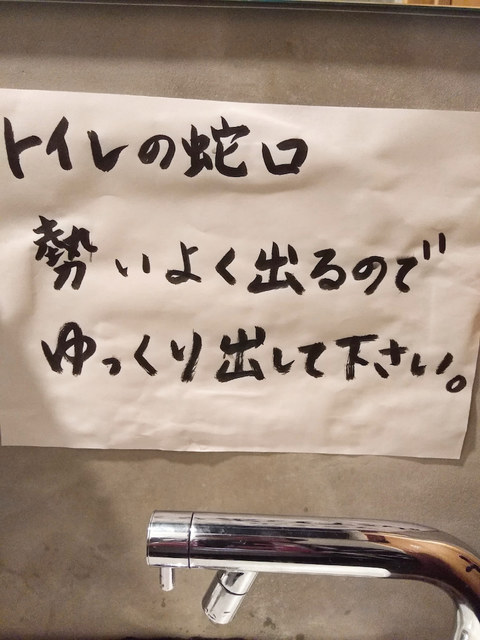 トイレの蛇口
勢いよく出るので
ゆっくり出して下さい。